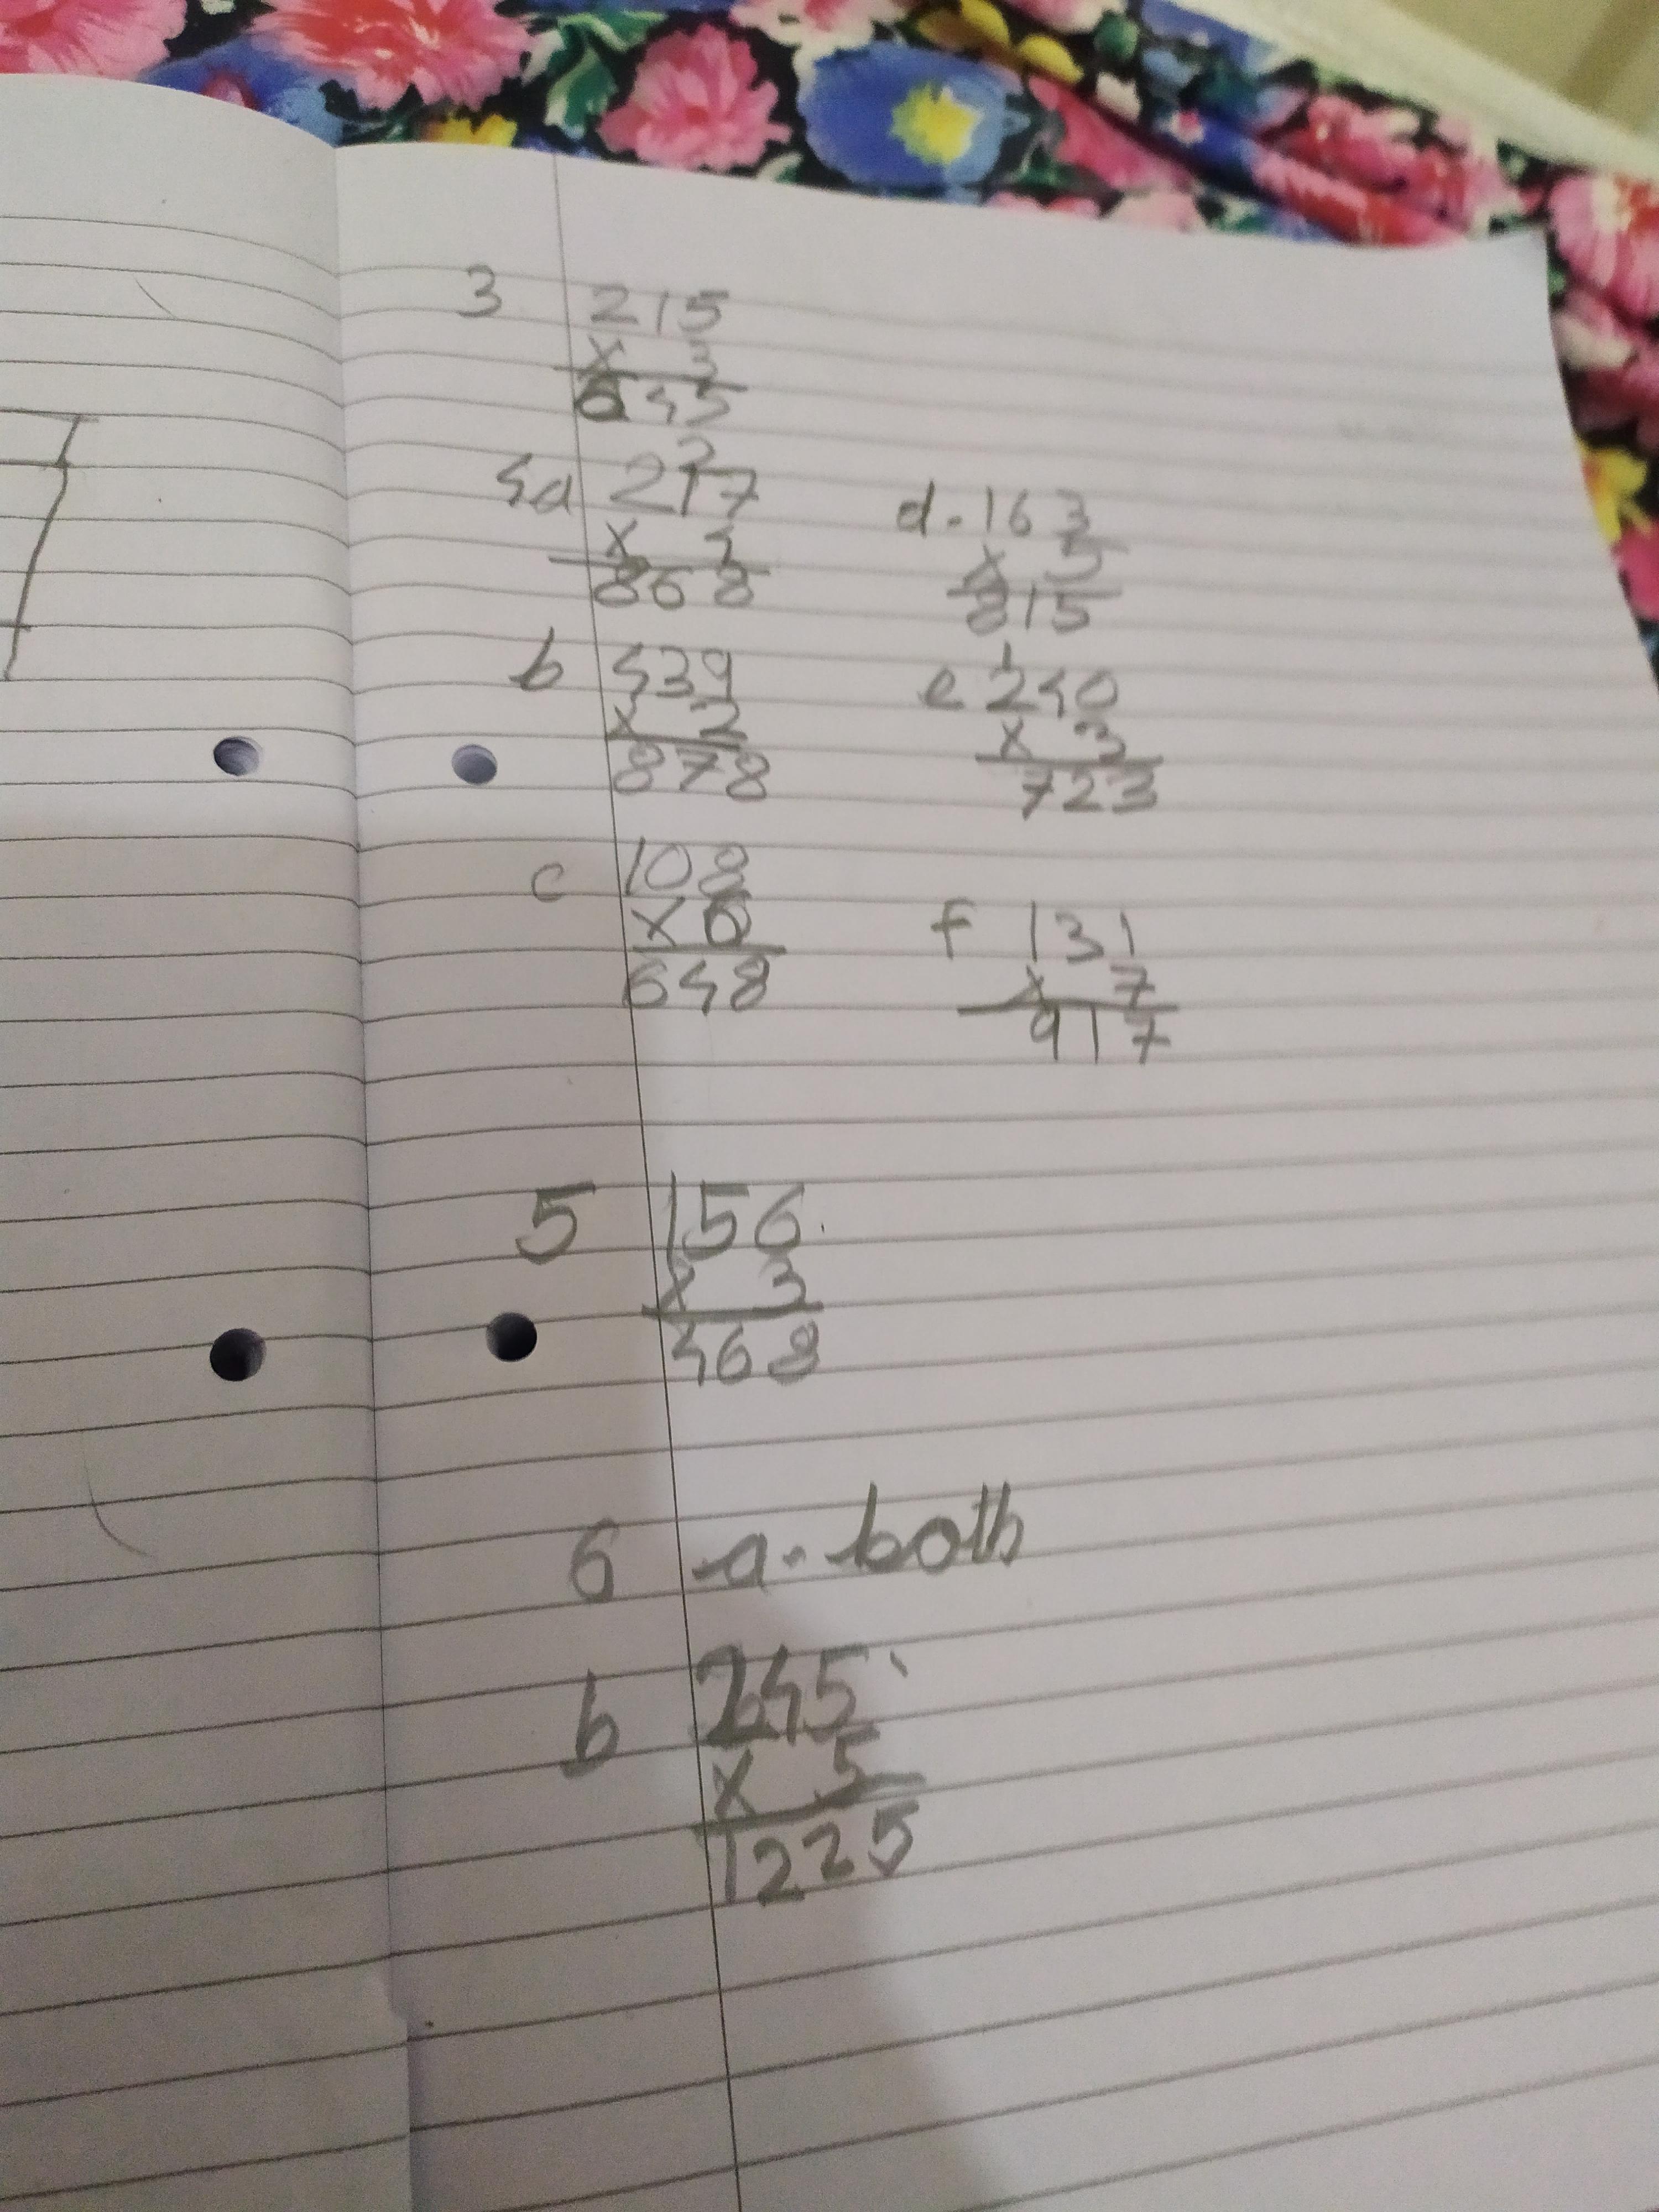 3 215
x 3
645
2
4a 217
x 4
868
b 439
x 2
878
c 108
x 6
648
d. 163
x 5
815
1
e 240
x 3
723
f 131
x 7
917
5 156
x 3
468
6 a. both
b 245
x 5
1225